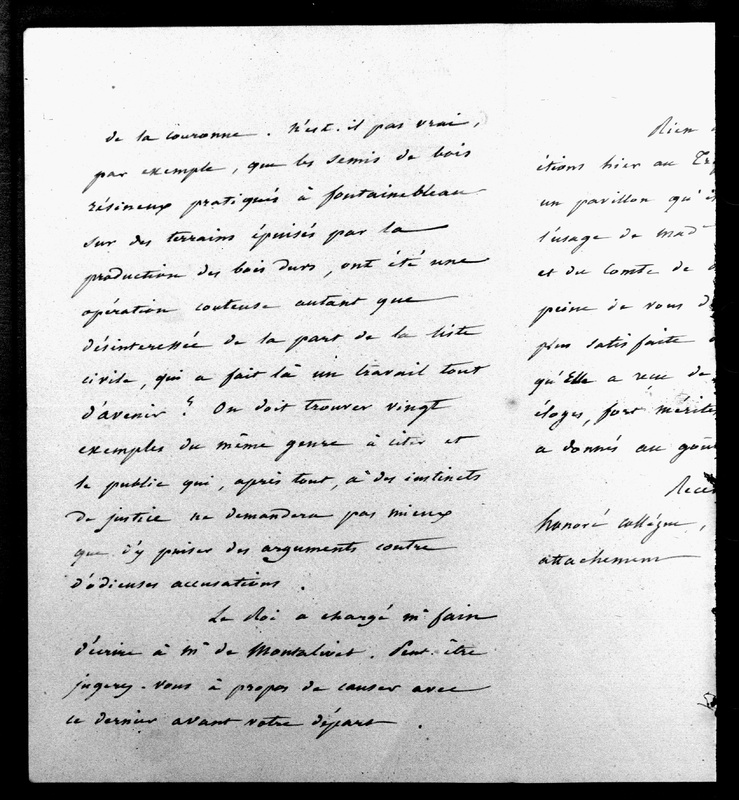 de la couronne. N'est-il pas vrai,
par exemple, que les semis de bois
résineux pratiqués à fontainebleau
sur des terrains épuisés par la
production des bois durs, ont été une
opération couteuse autant que
désinteressée de la part de la liste
civile, qui a fait là un travail tout
d'avenir? On doit trouver vingt
exemples du même genre à citer et
le public qui, après tout, a des instincts
de justice ne demandera pas mieux
que d'y puiser des arguments contre
d'odieuses accusations.
Le Roi a chargé Mr fain
d'écrire à Mr de Montalivet. Peut-être
jugerez-vous à propos de causer avec
ce dernier avant votre départ.
Rien
étions hier au
un pavillon qu'
l'usage de Mad
et du Comte de
peine de vous
plus satisfaite
qu'Elle a reçu de
éloges, fort mérités
a donnés au goût
honoré collègue,
attachement